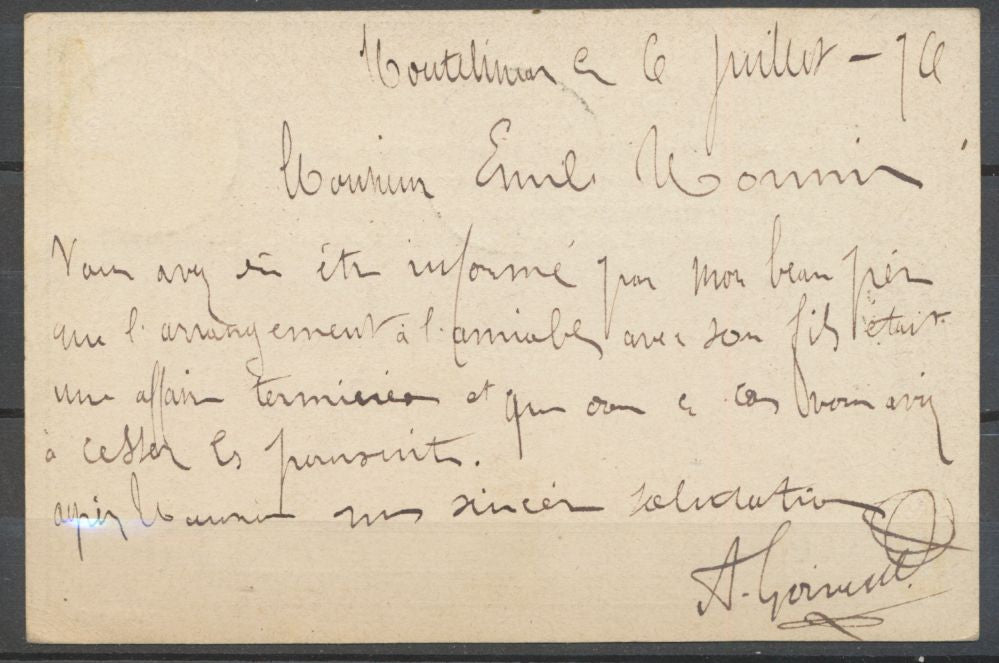 Montelimar le 6 juillet - 76
Monsieur Emile Monnier
Vous avez dû être informé par mon beau père
que l'arrangement à l'amiable avec son fils était
une affaire terminée et que dans ce cas vous aviez
à cesser les poursuites.
Monsieur mes sincères salutations
A.